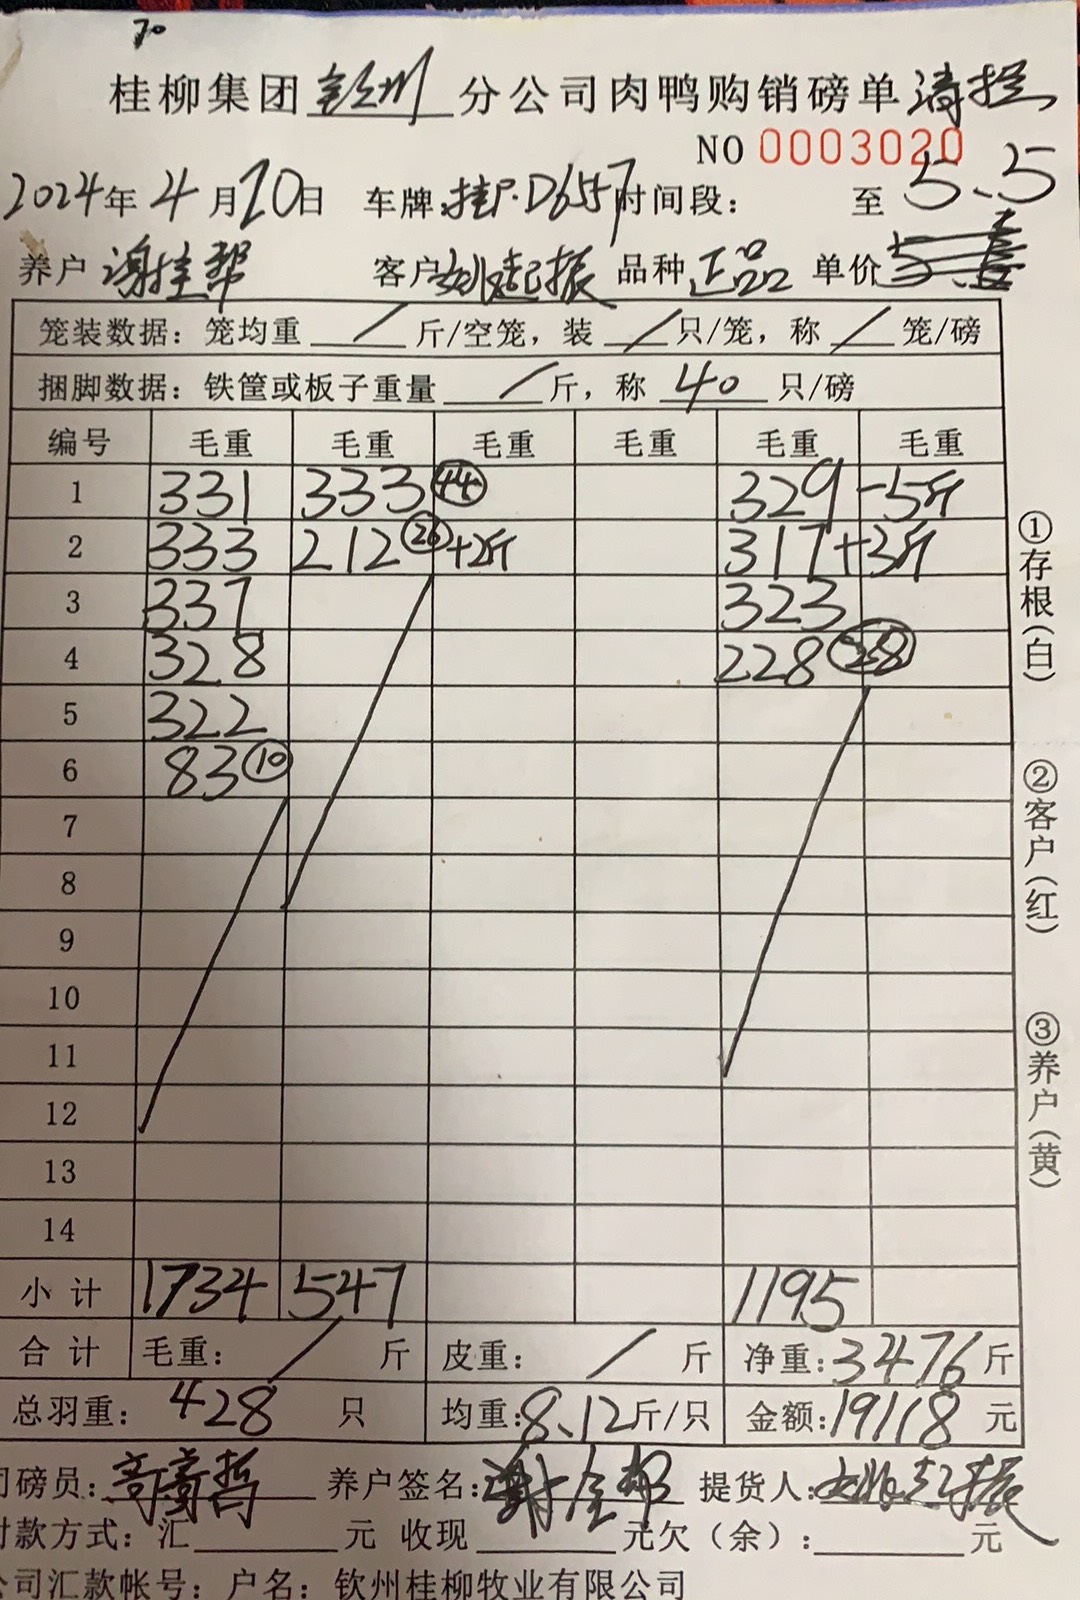 70
桂柳集团 钦州 分公司肉鸭购销磅单
NO 0003020
2024年4月20日 车牌:桂P.D6557 时间段: 至 5.5
养户 谢桂帮 客户 姚起振 品种 正品 单价
笼装数据:笼均重 / 斤/空笼,装 / 只/笼,称 / 笼/磅
捆脚数据:铁筐或板子重量 / 斤,称 40 只/磅
编号 毛重 毛重 毛重 毛重 毛重 毛重
1 331 333 44 329 -5斤
2 333 212 26 +2斤 317 +3斤
3 337 323
4 328 228 28
5 322
6 83 10
7
8
9
10
11
12
13
14
小计 1734 547 1195
合计 毛重: / 斤 皮重: / 斤 净重:3476斤
总羽重: 428 只 均重:8.12斤/只 金额:19118元
司磅员: 养户签名: 提货人:姚起振
付款方式:汇 元 收现 元欠(余): 元
公司汇款帐号:户名:钦州桂柳牧业有限公司
①存根(白)
②客户(红)
③养户(黄)